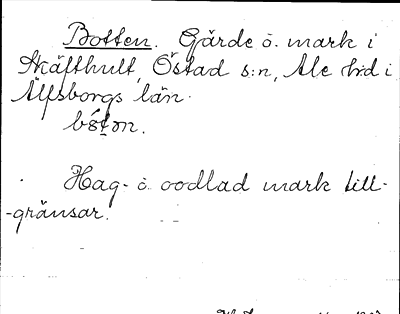 Botten. Gärde o. mark i
Skäfthult, Östad s:n, Ale h:d i
Älfsborgs län.
Hag- o. oodlad mark till-
-gränsar.